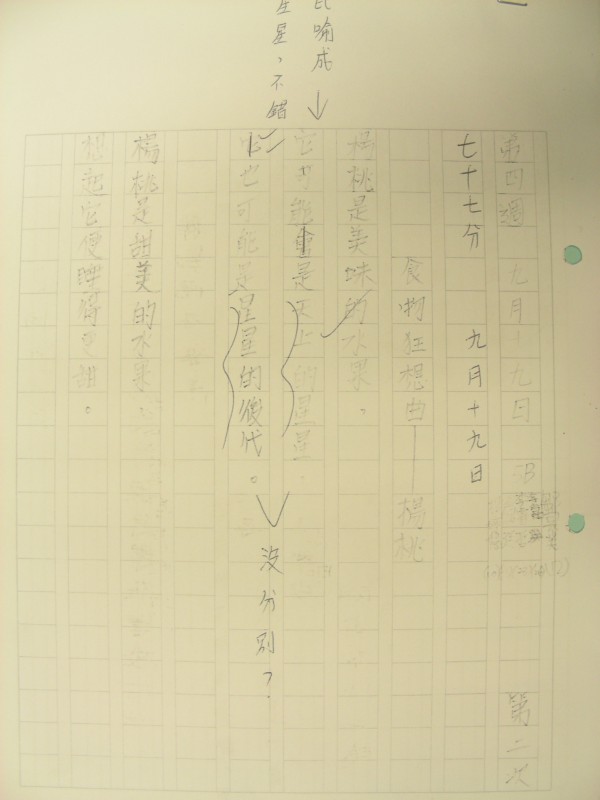 比喻成
星星，不錯
第四週 九月十九日 5B 第二次
七十七分 九月十九日
食物狂想曲——楊桃
楊桃是美味的水果。
它可能會是天上的星星.
它也可能是星星的後代。
沒分別？
楊桃是甜美的水果.
想起它便睡得更甜。